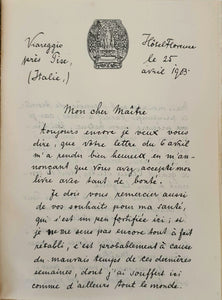 Viareggio
près Pise,
(Italie.)
Hôtel Florence
le 25
avril 1903.
Mon cher Maître
toujours encore je veux vous
dire, que votre lettre du 6 avril
m'a rendu bien heureux, en m'an-
nonçant que vous avez accepté mon
livre avec tant de bonté.
Je dois vous remercier aussi
de vos souhaits pour ma santé,
qui s'est un peu fortifiée ici; si
je ne me sens pas encore tout à fait
rétabli, c'est probablement à cause
du mauvais temps de ces dernières
semaines, dont j'ai souffert ici
comme d'ailleurs tout le monde.